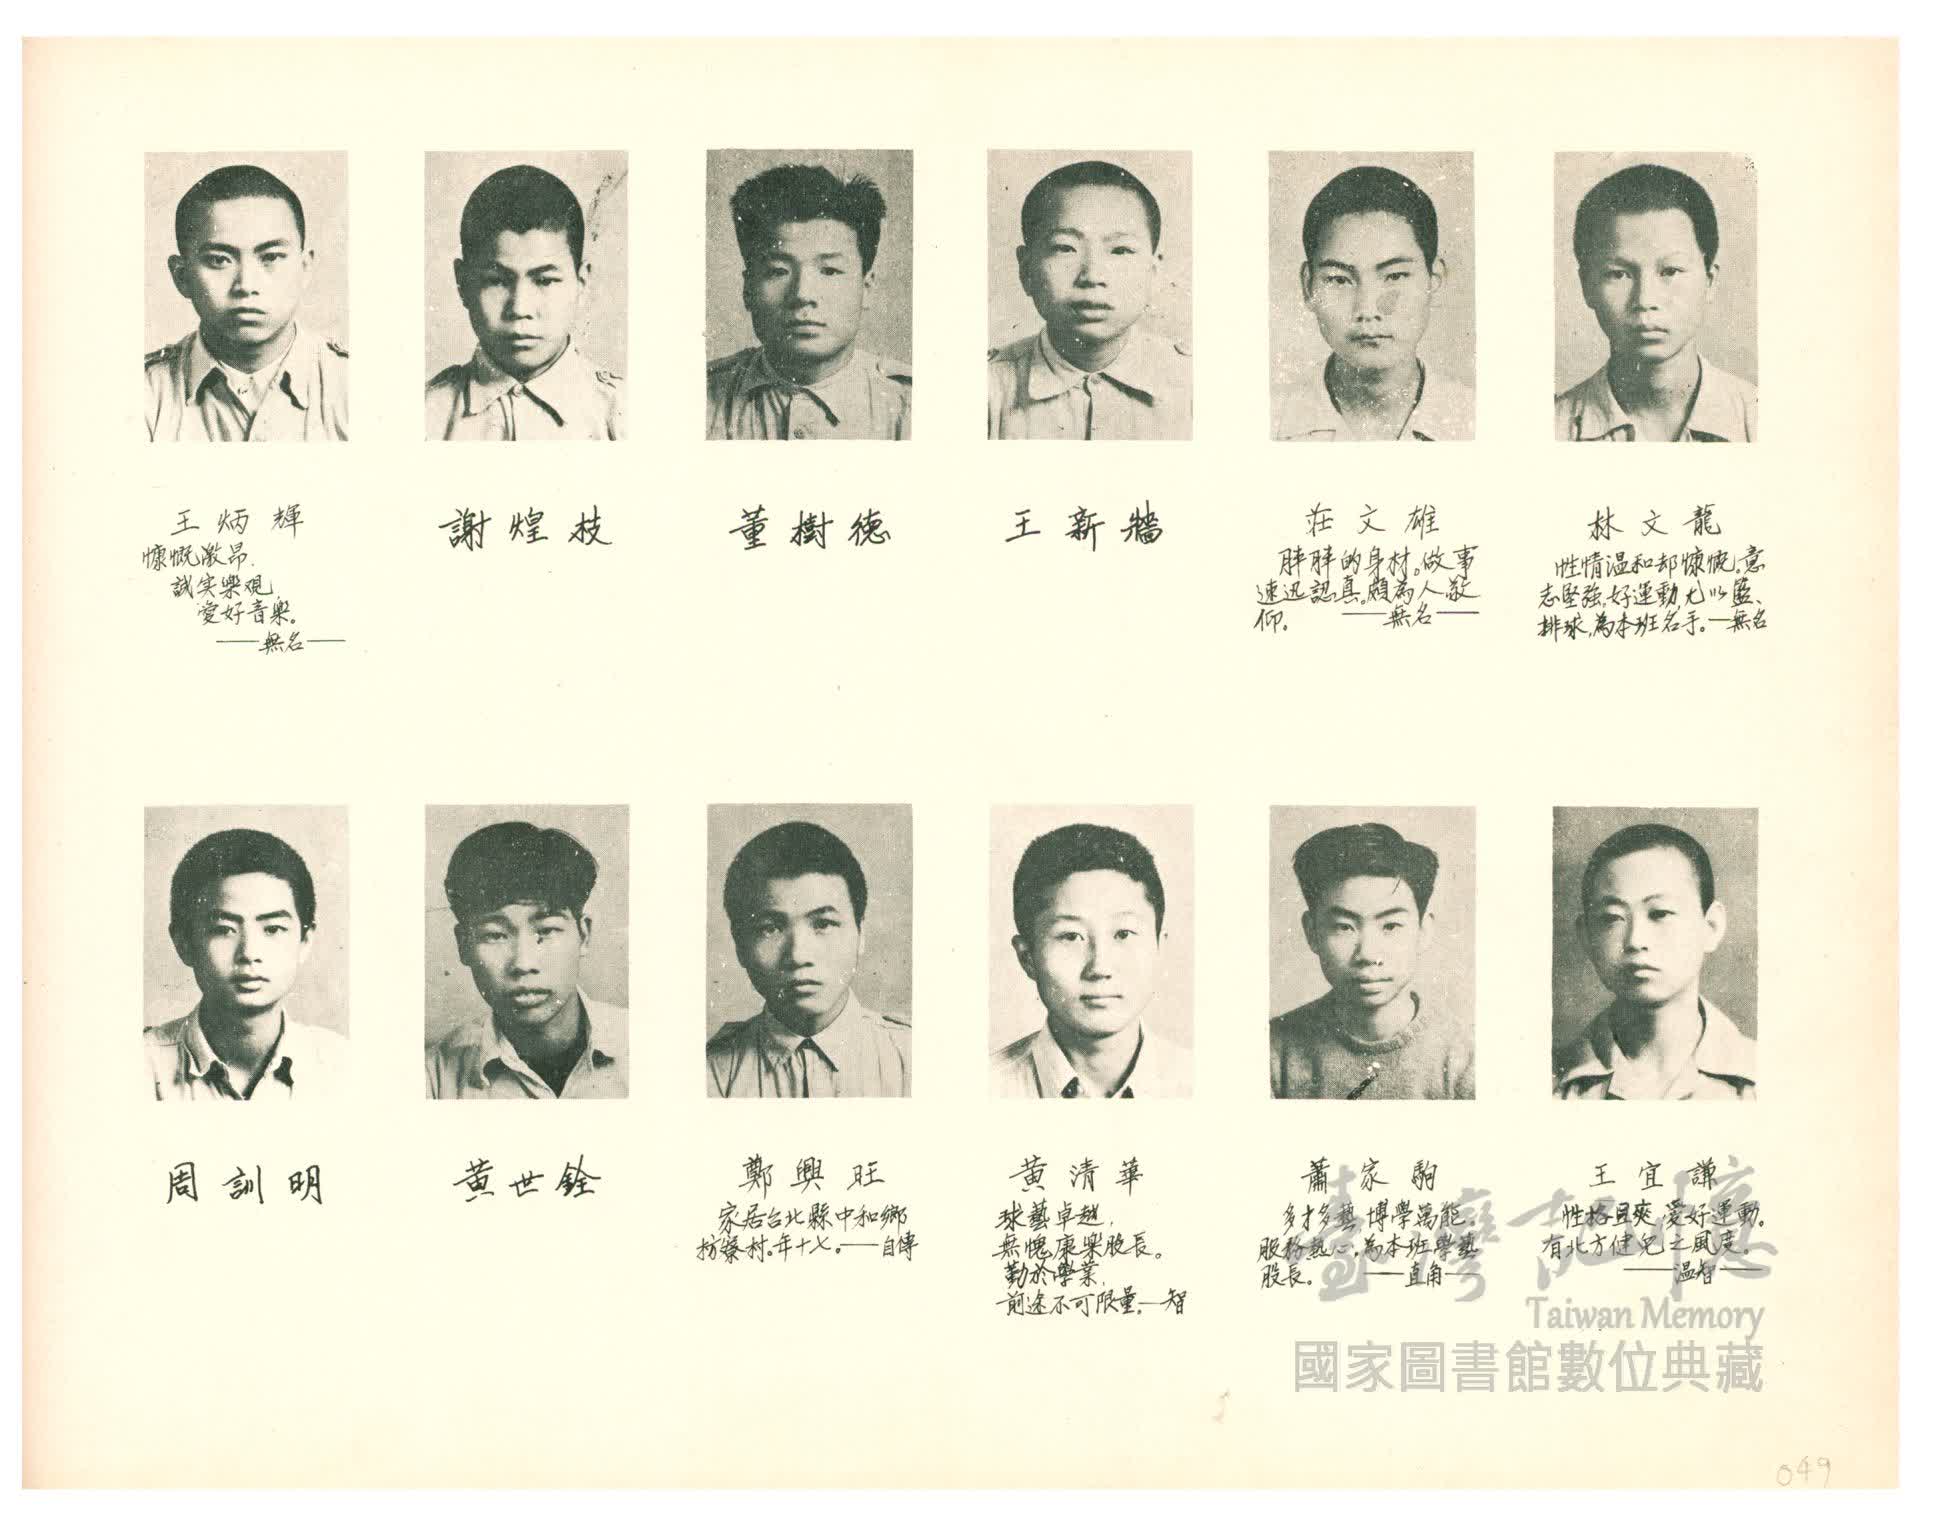 王炳輝
慷慨激昂,
誠实樂观,
愛好音樂。
——無名——
謝煌枝
董樹德
王新牆
莊文雄
胖胖的身材。做事
速迅認真。頗為人敬
仰。——無名——
林文龍
性情溫和却慷慨。意
志堅強,好運動,尤以籃、
排球,為本班名手。—無名
周訓明
黃世銓
鄭興旺
家居台北縣中和鄉
枋寮村。年十七。——自傳
黃清華
球藝卓越,
無愧康樂股長。
勤於學業,
前途不可限量。—智
蕭家駒
多才多藝,博學萬能。
服務熱心。為本班學藝
股長。——直角—
王宜謙
性格且爽,愛好運動。
有北方健兒之風度。
——溫智——
臺灣記憶
Taiwan Memory
國家圖書館數位典藏
049